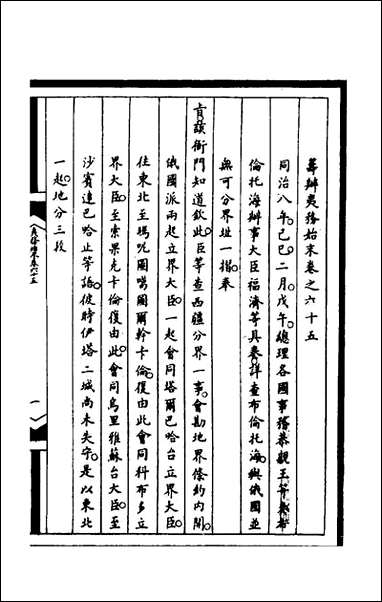 籌辦夷務始末卷之六十五
同治八年己巳二月戊午總理各國事務恭親王等奏
倫托海辦事大臣福濟等具奏詳查布倫托海與俄國並
無可分界址一摺奉
旨該衙門知道欽此臣等查西疆分界一事會勘地界條約內開
俄國派兩起立界大臣一起會同塔爾巴哈台立界大臣
往東北至瑪呢圖噶圖勒幹卡倫復由此會同科布多立
界大臣至索果克卡倫復由此會同烏里雅蘇台大臣至
沙賓達巴哈止等語彼時伊塔二城尚未失守是以東北
一起地分三段